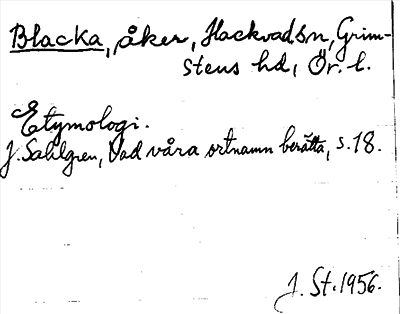 Blacka, åker, Hackvadsn, Grim-
stens hd, Ör. l.
Etymologi.
J. Sahlgren, Vad våra ortnamn berätta, s. 18.
J. St. 1956.